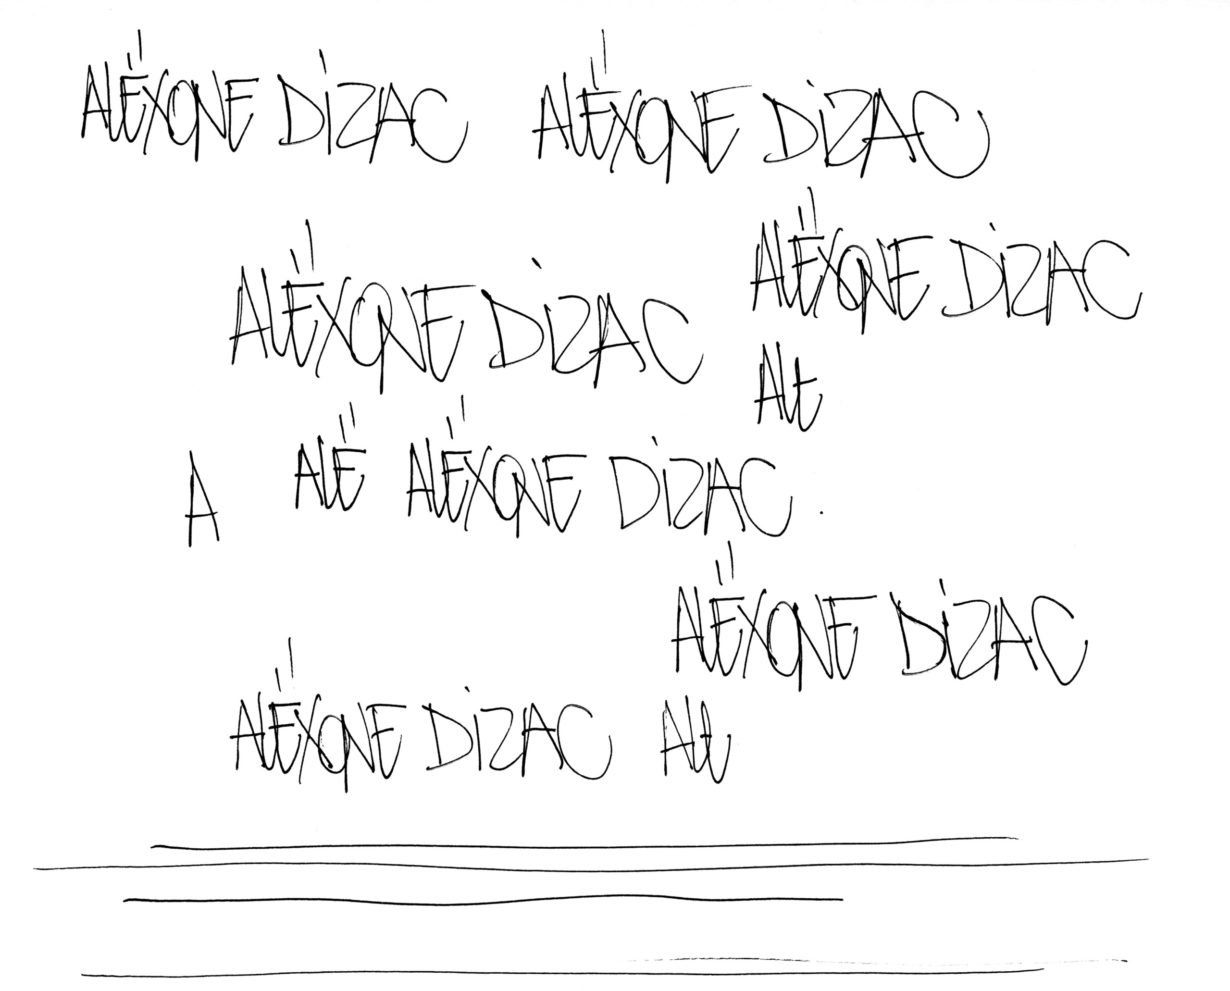 ALËXONE DIZAC ALËXONE DIZAC
ALËXONE DIZAC ALËXONE DIZAC
ALE
A ALË ALËXONE DIZAC
ALËXONE DIZAC
ALËXONE DIZAC ALE